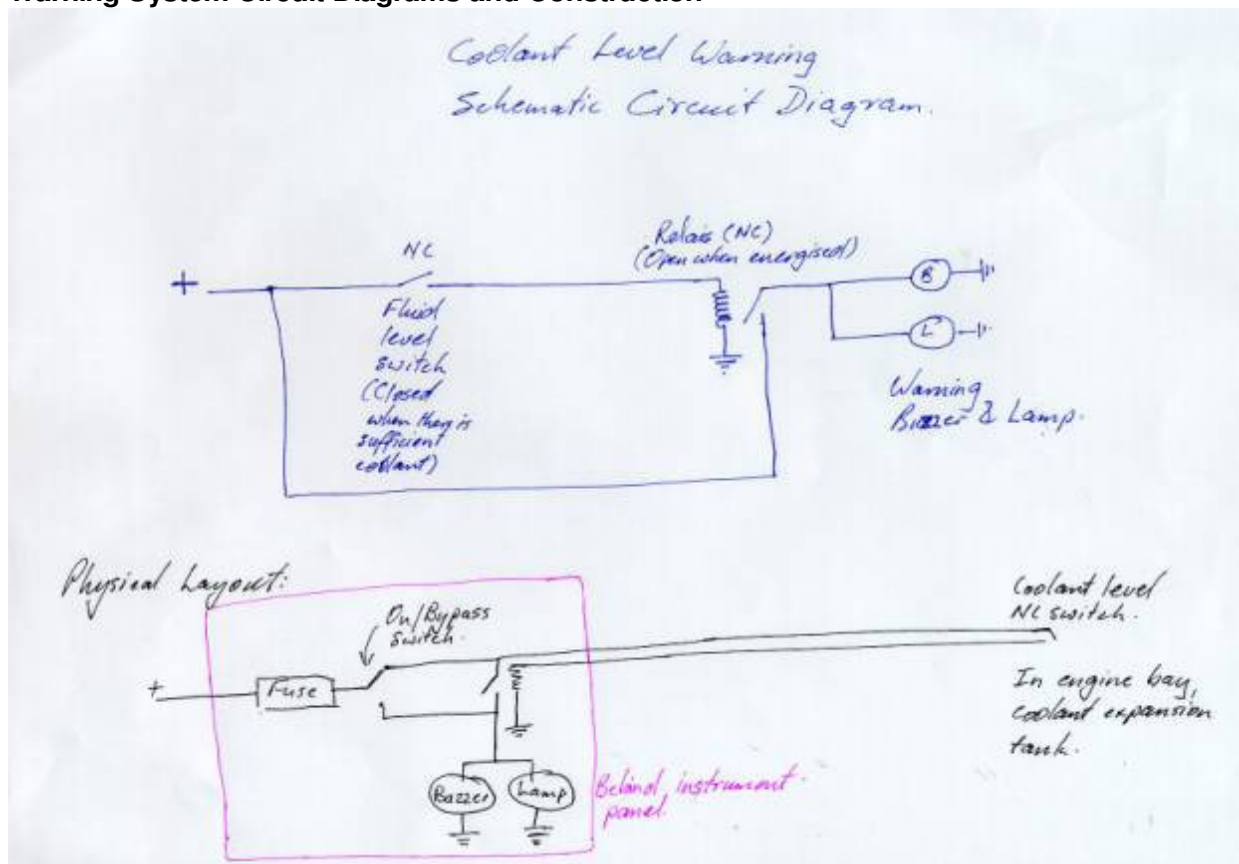 Warning System Circuit Diagrams and Construction
Coolant Level Warning
Schematic Circuit Diagram.
+
NC
Fluid
level
switch
(Closed
when there is
sufficient
coolant)
Relais (NC)
(Open when energised)
B
L
Warning
Buzzer & Lamp.
Physical Layout:
On/Bypass
Switch.
+
Fuse
Buzzer
Lamp
Behind instrument
panel.
Coolant level
NC switch.
In engine bay,
coolant expansion
tank.